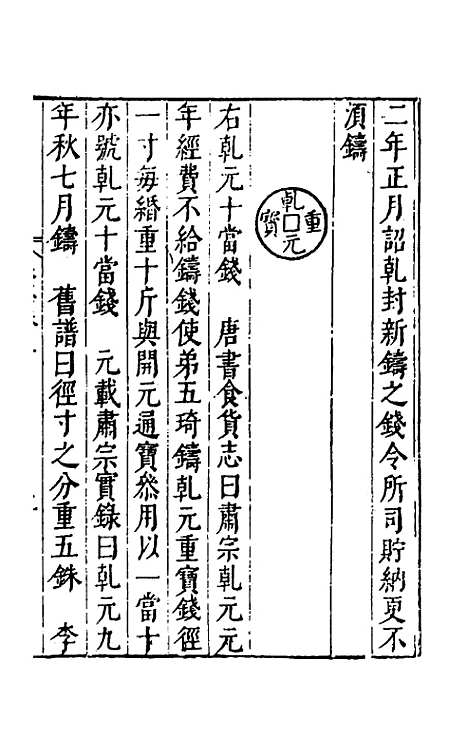 二年正月詔乹封新鑄之錢令所司貯納更不
湏鑄
乹元重寶
右乹元十當錢　唐書食貨志曰肅宗乹元元
年經費不給鑄錢使弟五琦鑄乹元重寶錢徑
一寸每緡重十斤與開元通寶叅用以一當十
亦號乹元十當錢　元載肅宗實錄曰乹元九
年秋七月鑄　舊譜曰徑寸之分重五銖　李